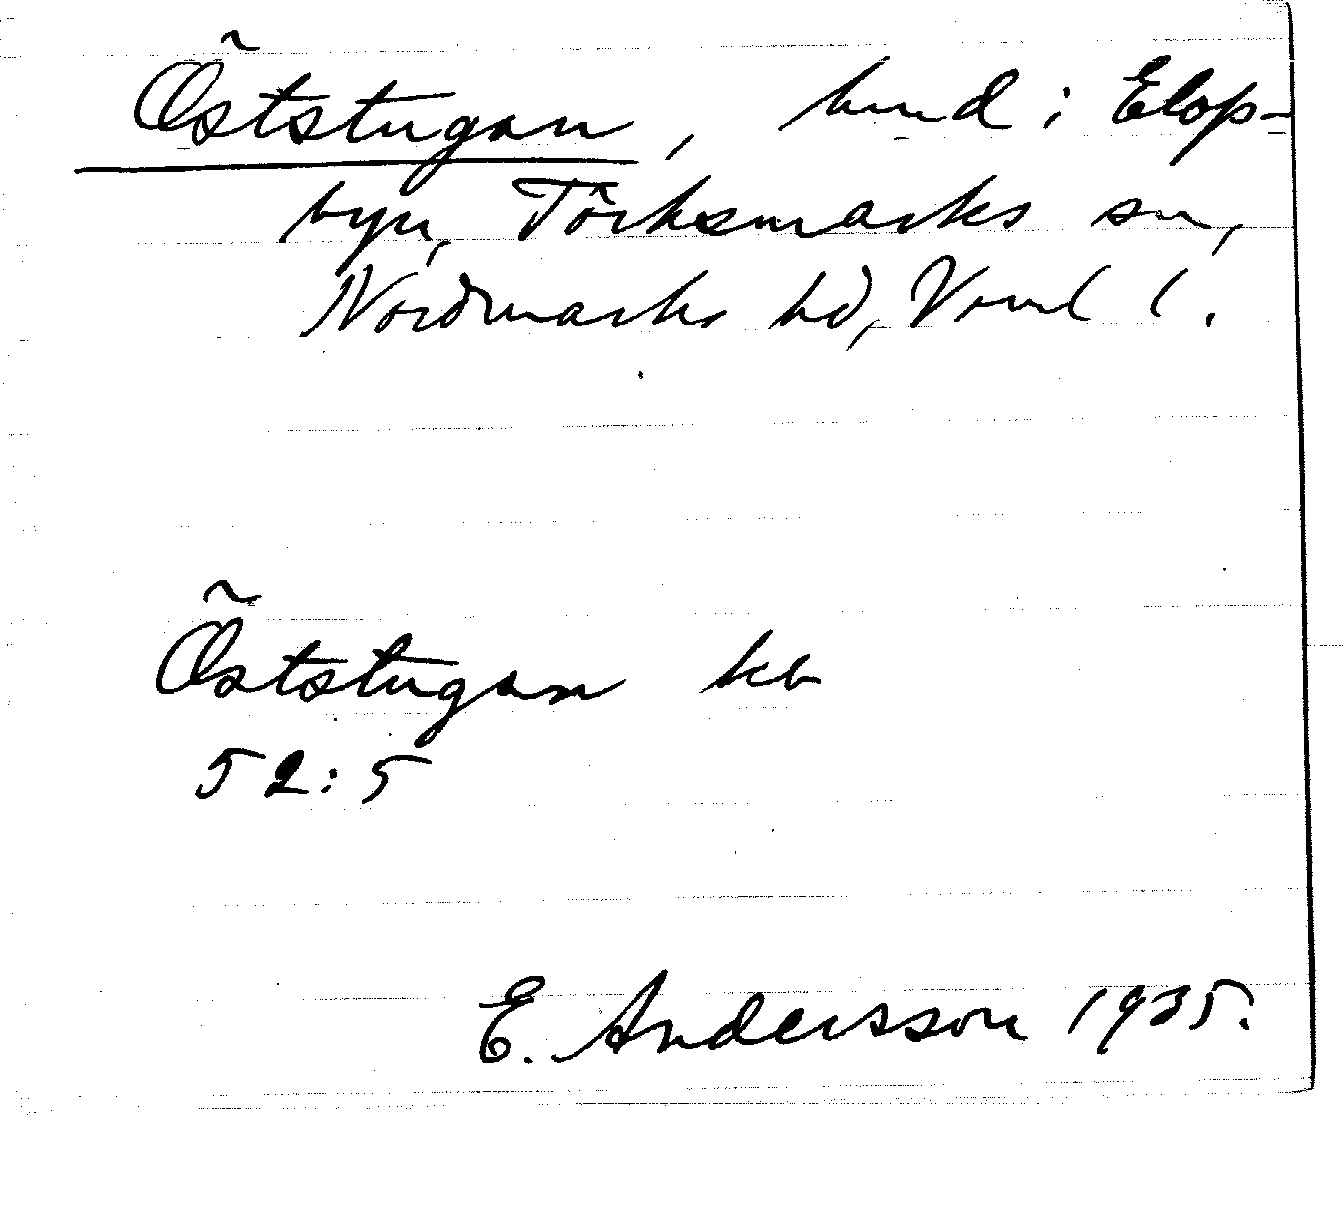 Öststugan, hmd i Elop-
byn, Törksmarks sn,
Nordmarks hd, Vrml l.
Öststugan kb
52:5
E. Andersson 1935.